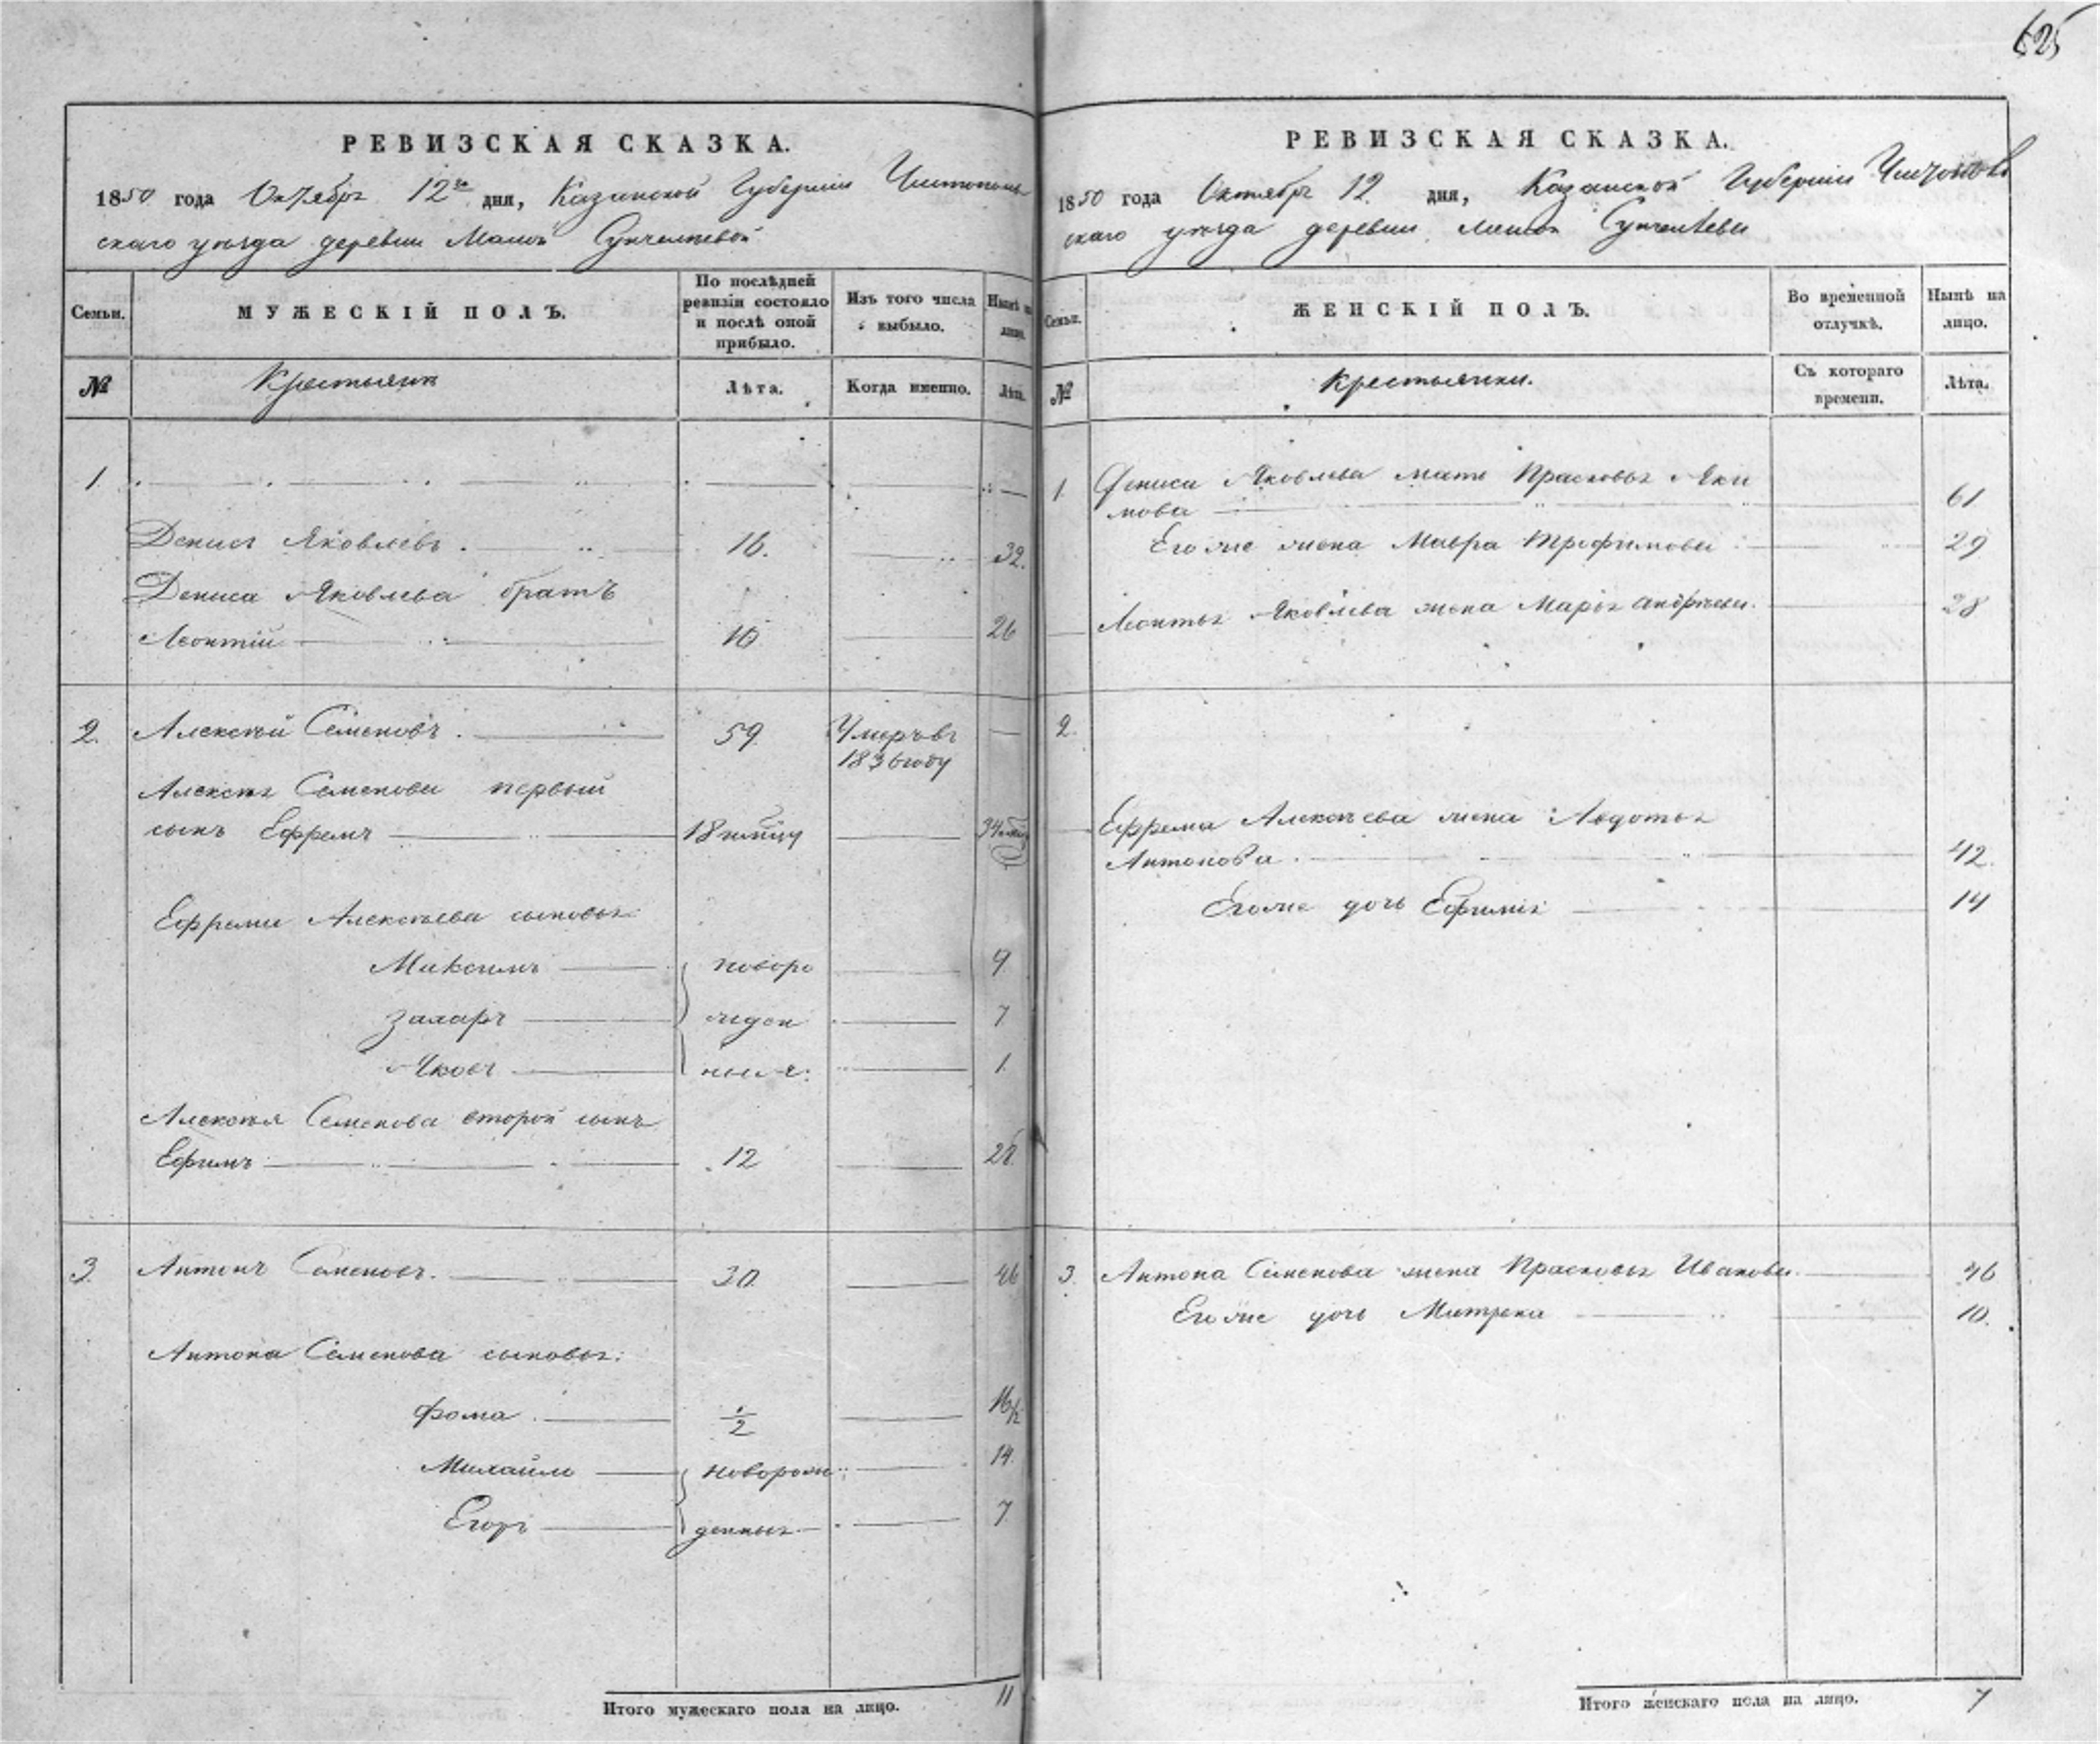 625
РЕВИЗСКАЯ СКАЗКА.
1850 года Октября 12го дня, Казанской Губернии Чистополь
скаго уѣзда деревни Малой Сунчелеевой
Семьи.
МУЖЕСКІЙ ПОЛЪ.
По послѣдней ревизіи состояло и послѣ оной прибыло.
Изъ того числа выбыло.
Нынѣ на лицо.
№
Крестьяне
Лѣта.
Когда именно.
Лѣта.
1.
Денисъ Яковлевъ. 16. 32.
Дениса Яковлева братъ
Леонтій 10 26
2. Алексѣй Семеновъ. 59. Умеръ въ
1836 году
Алексѣя Семенова первый
сынъ Ефремъ 18 34
Ефрема Алексѣева сыновья:
Максимъ новоро 9
Захаръ жден 7
Яковъ ные. 1
Алексѣя Семенова второй сынъ
Ефимъ 12 28
3. Антонъ Семеновъ. 30. 46
Антона Семенова сыновья:
Фома 1/2 16 1/2
Михайло новорож 14.
Егоръ денныя 7
Итого мужескаго пола на лицо. 11
РЕВИЗСКАЯ СКАЗКА.
1850 года Октября 12. дня, Казанской Губерніи Чистополь
скаго уѣзда деревни Малой Сунчелеевы
Семьи.
ЖЕНСКІЙ ПОЛЪ.
Во временной отлучкѣ.
Нынѣ на лицо.
№
Крестьянки.
Съ котораго времени.
Лѣта.
1. Дениса Яковлева мать Прасковья Яки
мова 61
Его же жена Мавра Трофимова 29
Леонтья Яковлева жена Марья Андрѣева. 28
2.
Ефрема Алексѣева жена Авдотья
Антонова. 42.
Его же дочь Ефимія 14
3. Антона Семенова жена Прасковья Иванова. 46
Его же дочь Матрена 10.
Итого женскаго пола на лицо. 7